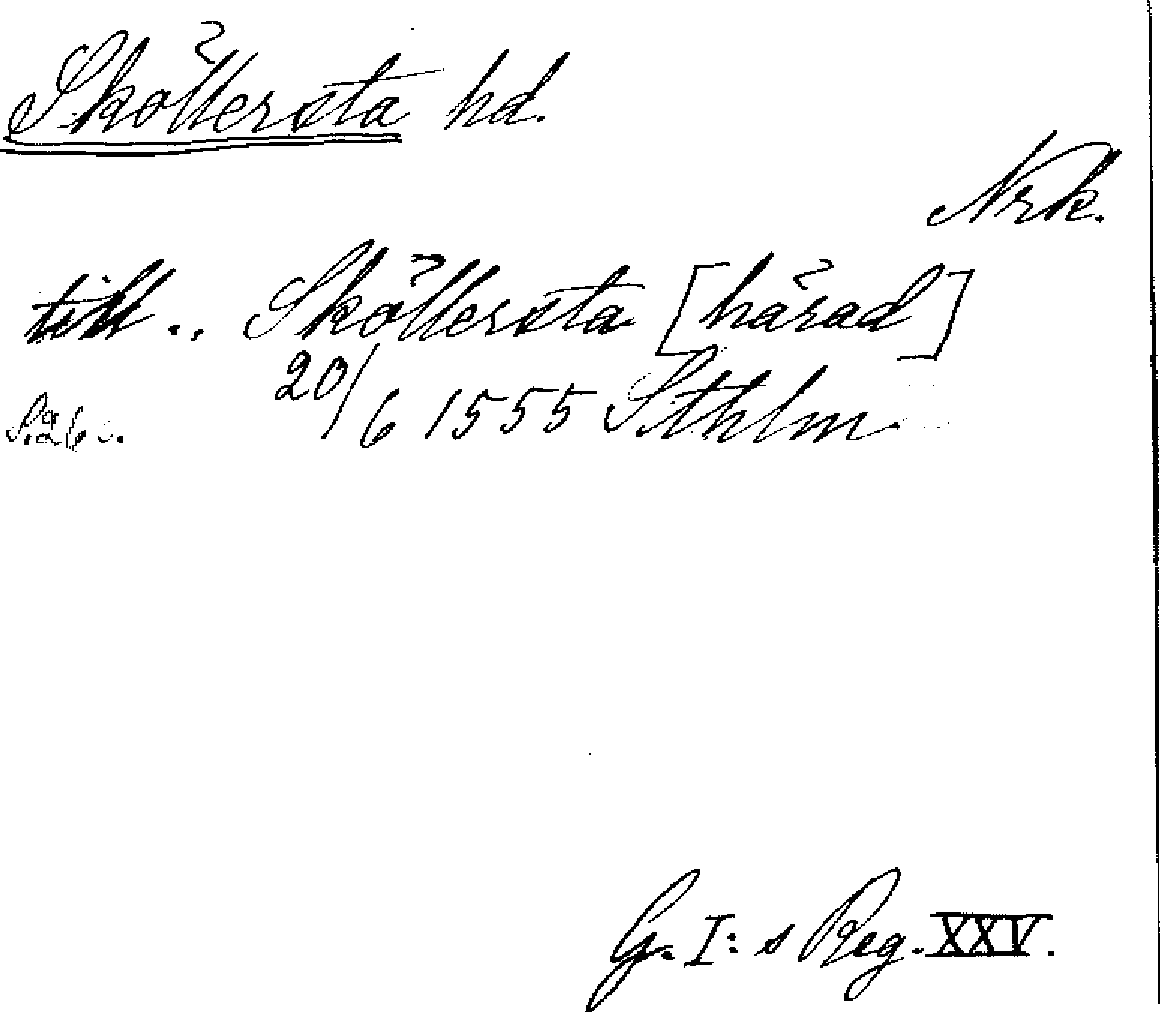 Sköllersta hd.
Nrk.
till .. Sköllersta [härad]
20/6 1555 Sthlm
G. I:s Reg. XXV.